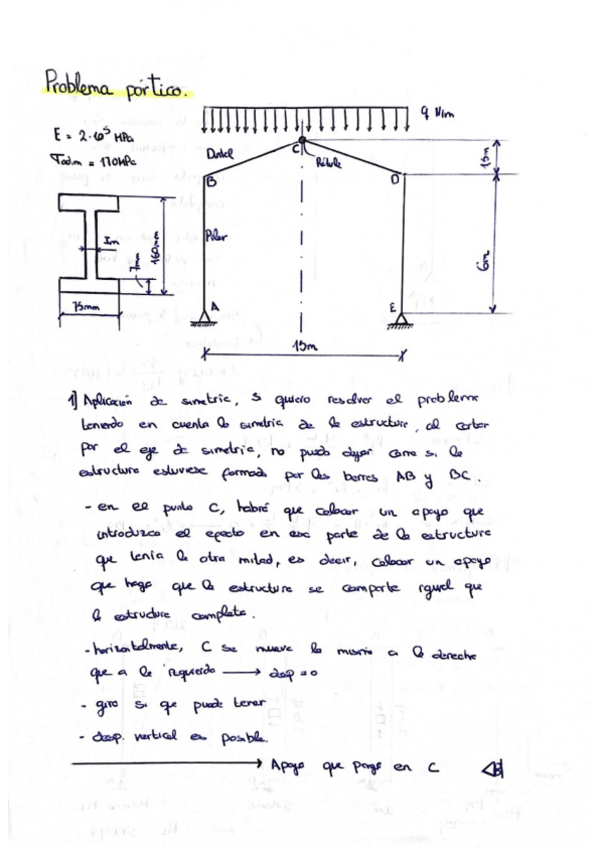 Problema pórtico.
E = 2·10⁵ MPa
σadm = 170MPa
q N/m
C
Dintel
Rótula
B
D
1,5m
Pilar
6m
7mm
160mm
75mm
A
E
15m
1) Aplicación de simetría, si quiero resolver el problema
teniendo en cuenta la simetría de la estructura, al cortar
por el eje de simetría, no puedo dejar como si la
estructura estuviese formada por las barras AB y BC.
- en el punto C, habrá que colocar un apoyo que
introduzca el efecto en esa parte de la estructura
que tenía la otra mitad, es decir, colocar un apoyo
que haga que la estructura se comporte igual que
la estructura completa.
- horizontalmente, C se mueve lo mismo a la derecha
que a la izquierda → desp = 0
- giro si que puede tener
- desp. vertical es posible.
→ Apoyo que pongo en C